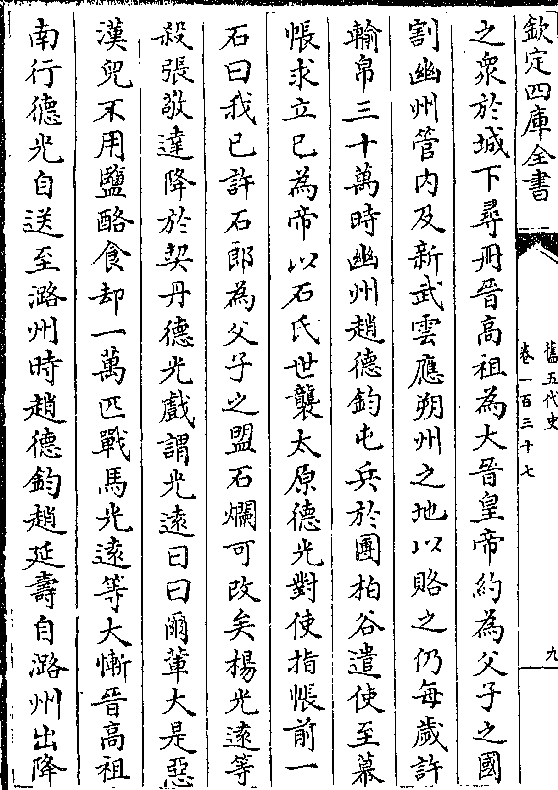 欽定四庫全書
舊五代史
卷一百三十七
九
之衆於城下尋冊晉高祖為大晉皇帝約為父子之國
割幽州管内及新武雲應朔州之地以賂之仍每歲許
輸帛三十萬時幽州趙德鈞屯兵於團柏谷遣使至幕
帳求立己為帝以石氏世襲太原德光對使指帳前一
石曰我已許石郎為父子之盟石爛可改矣楊光逺等
殺張敬達降於契丹德光戲謂光逺曰曰爾輩大是惡
漢兒不用鹽酪食却一萬匹戰馬光逺等大慚晉高祖
南行德光自送至潞州時趙德鈞趙延壽自潞州出降